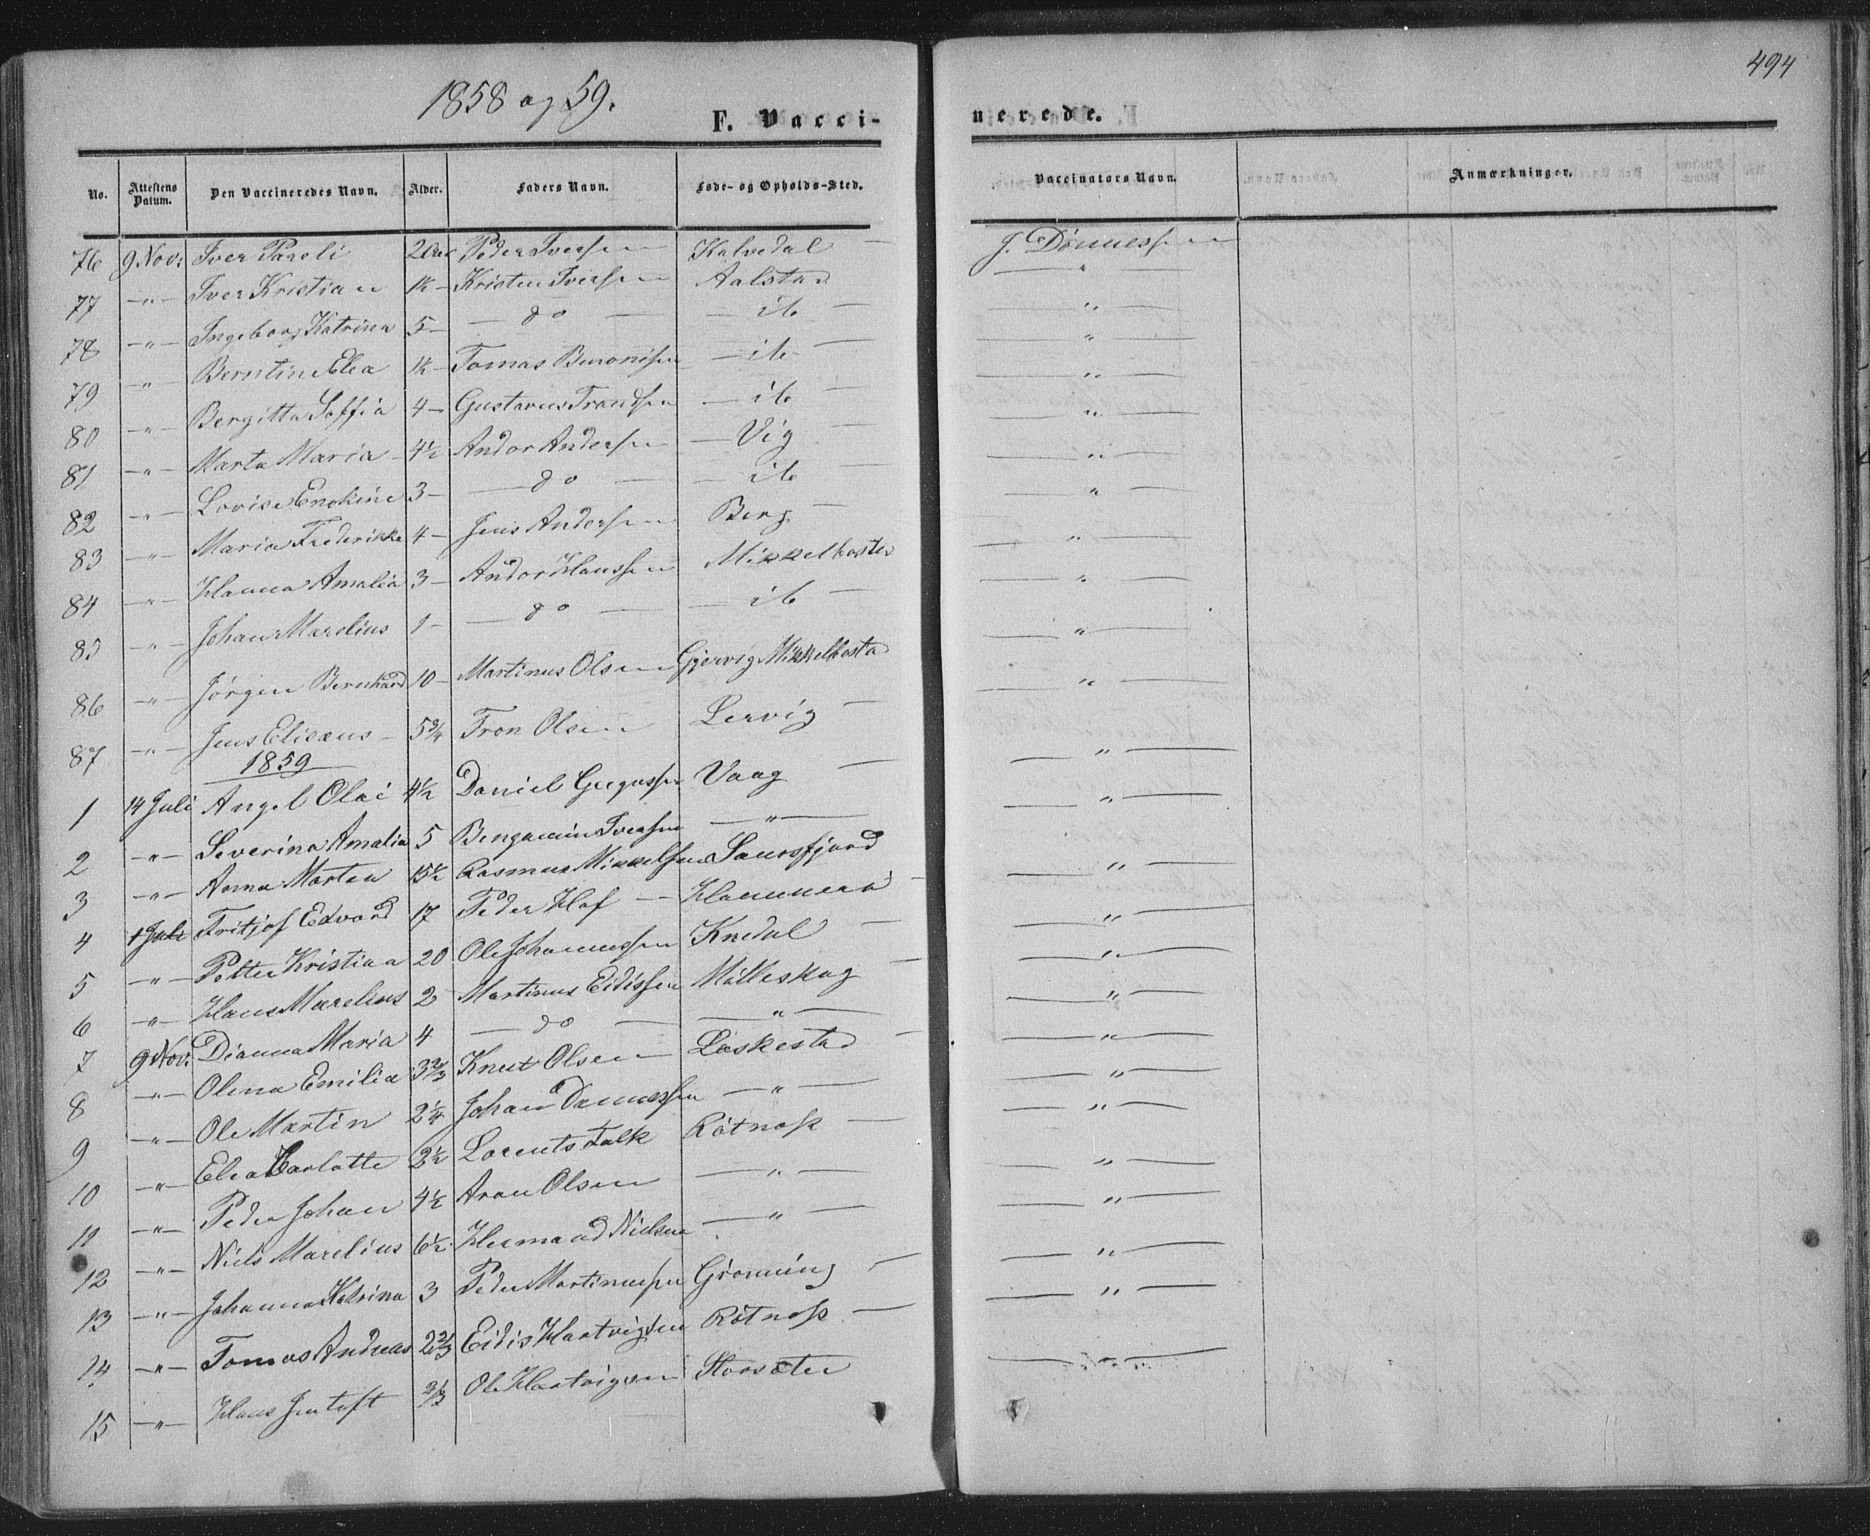 494
1858 og 59.
F. Vacci- nerede.
No. Attestens Datum. Den Vaccineredes Navn. Alder. Faders Navn. Føde- og Opholds-Sted. Vaccinators Navn. Anmærkninger.
76 9 Nov: Iver Pareli 2 Peder Iversen Kalvedal — J. Dönnessen
77 —"— Iver Kristian 1½ — Kristen Iversen Aalstad — "
78 —"— Ingeborg Katrina 5 — — do — — ib — "
79 —"— Berntine Elea 1½ — Tomas — ib — "
80 —"— Bergitta Soffia 4 — Gustavus — ib — "
81 —"— Marta Maria 4½ Andor Andersen — Vig — "
82 —"— Lovise Enokine 3 — — do — — ib — "
83 —"— Maria Frederikke 4 — Jens Andersen Berg — "
84 —"— Hanna Amalia 3 — Andor Hanssen Mikkelbostad "
85 —"— Johan Marelius 1 — — do — — ib — "
86 —"— Jörgen Bernhard 10 — Martinus Olsen Gjervig Mikkelbostad "
87 —"— Jens Eliseus — 5¾ Tron Olsen Lervig — "
1859
1 14 Juli Angel Olai 4½ Daniel Vaag — "
2 —"— Severina Amalia 5 Bengamin Iversen —"— "
3 —"— Anna Marten 15½ Rasmus Mikkelsen Saursfjord "
4 1 Juli Fritjof Edvard 17 Peder Hof — Hammerö — "
5 —"— Petter Kristian 20 Ole Johannessen Knedal — "
6 —"— Hans Marelius 2 Martinus Eidissen Mölleskog — "
7 9 Nov: Dianna Maria 4 — do — —"— "
8 —"— Olena Emilia 3⅔ Knut Olsen Laskestad — "
9 —"— Ole Martin 2¼ Johan —"— "
10 —"— Elea Carlotte 2½ Lorents Falk Rötnæs — "
11 —"— Peder Johan 4½ Aron Olsen —"— "
12 —"— Niels Marelius 6½ Hermand Nielsen —"— "
13 —"— Johanna Katrina 3 Peder Martinussen Grönning — "
14 —"— Tomas Andreas 2⅔ Eidis Hartvigsen Rötnæs — "
15 —"— Hans Jentoft ⅔ Ole Hartvigsen Storsæter